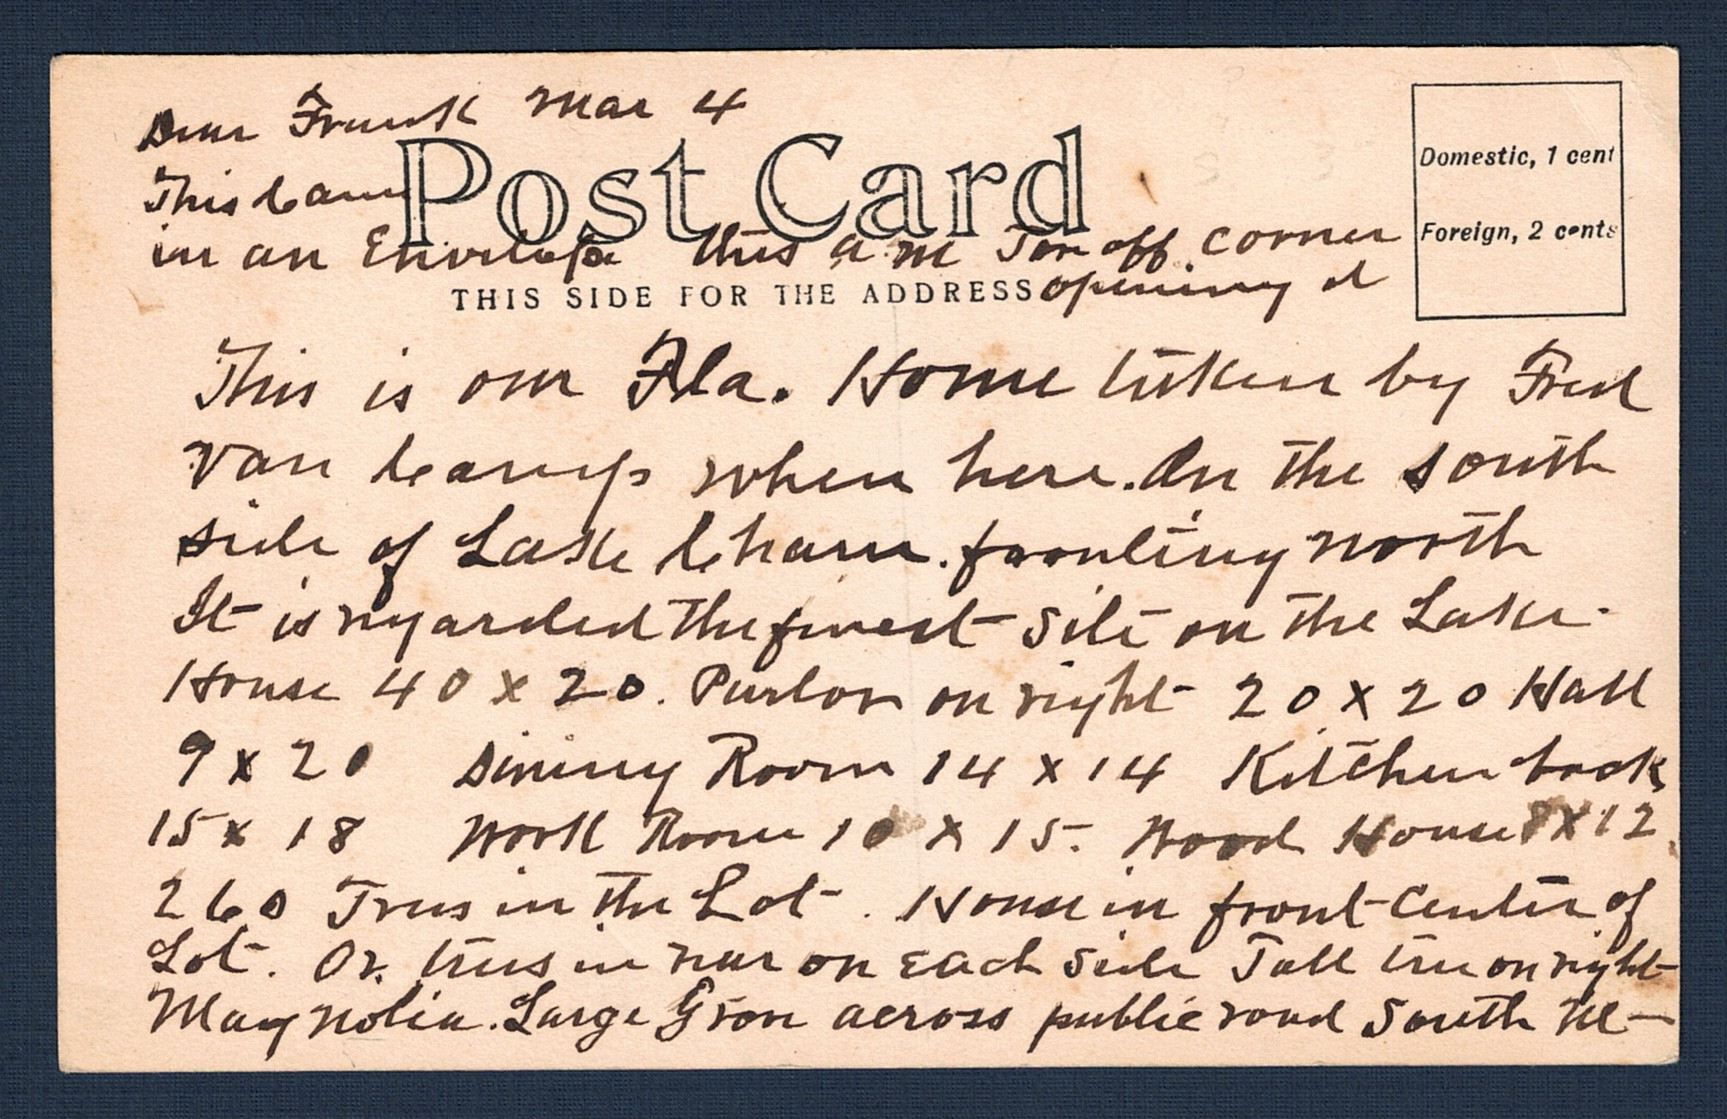 Dear Frank Mar 4
Post Card
This Came
in an Envelope this a m Tore off corner
opening it
THIS SIDE FOR THE ADDRESS
Domestic, 1 cent
Foreign, 2 cents
This is our Fla. Home taken by Fred
Van Camp when here. On the south
side of Lake Charm. fronting north
It is regarded the finest site on the Lake.
House 40 x 20. Parlor on right 20 x 20 Hall
9 x 20 Dining Room 14 x 14 Kitchen back
15 x 18 Work Room 10 x 15. Wood House 8 x 12
260 Trees in the Lot. House in front center of
Lot. Or. trees in rear on each side Tall tree on right
Magnolia. Large Grove across public road South